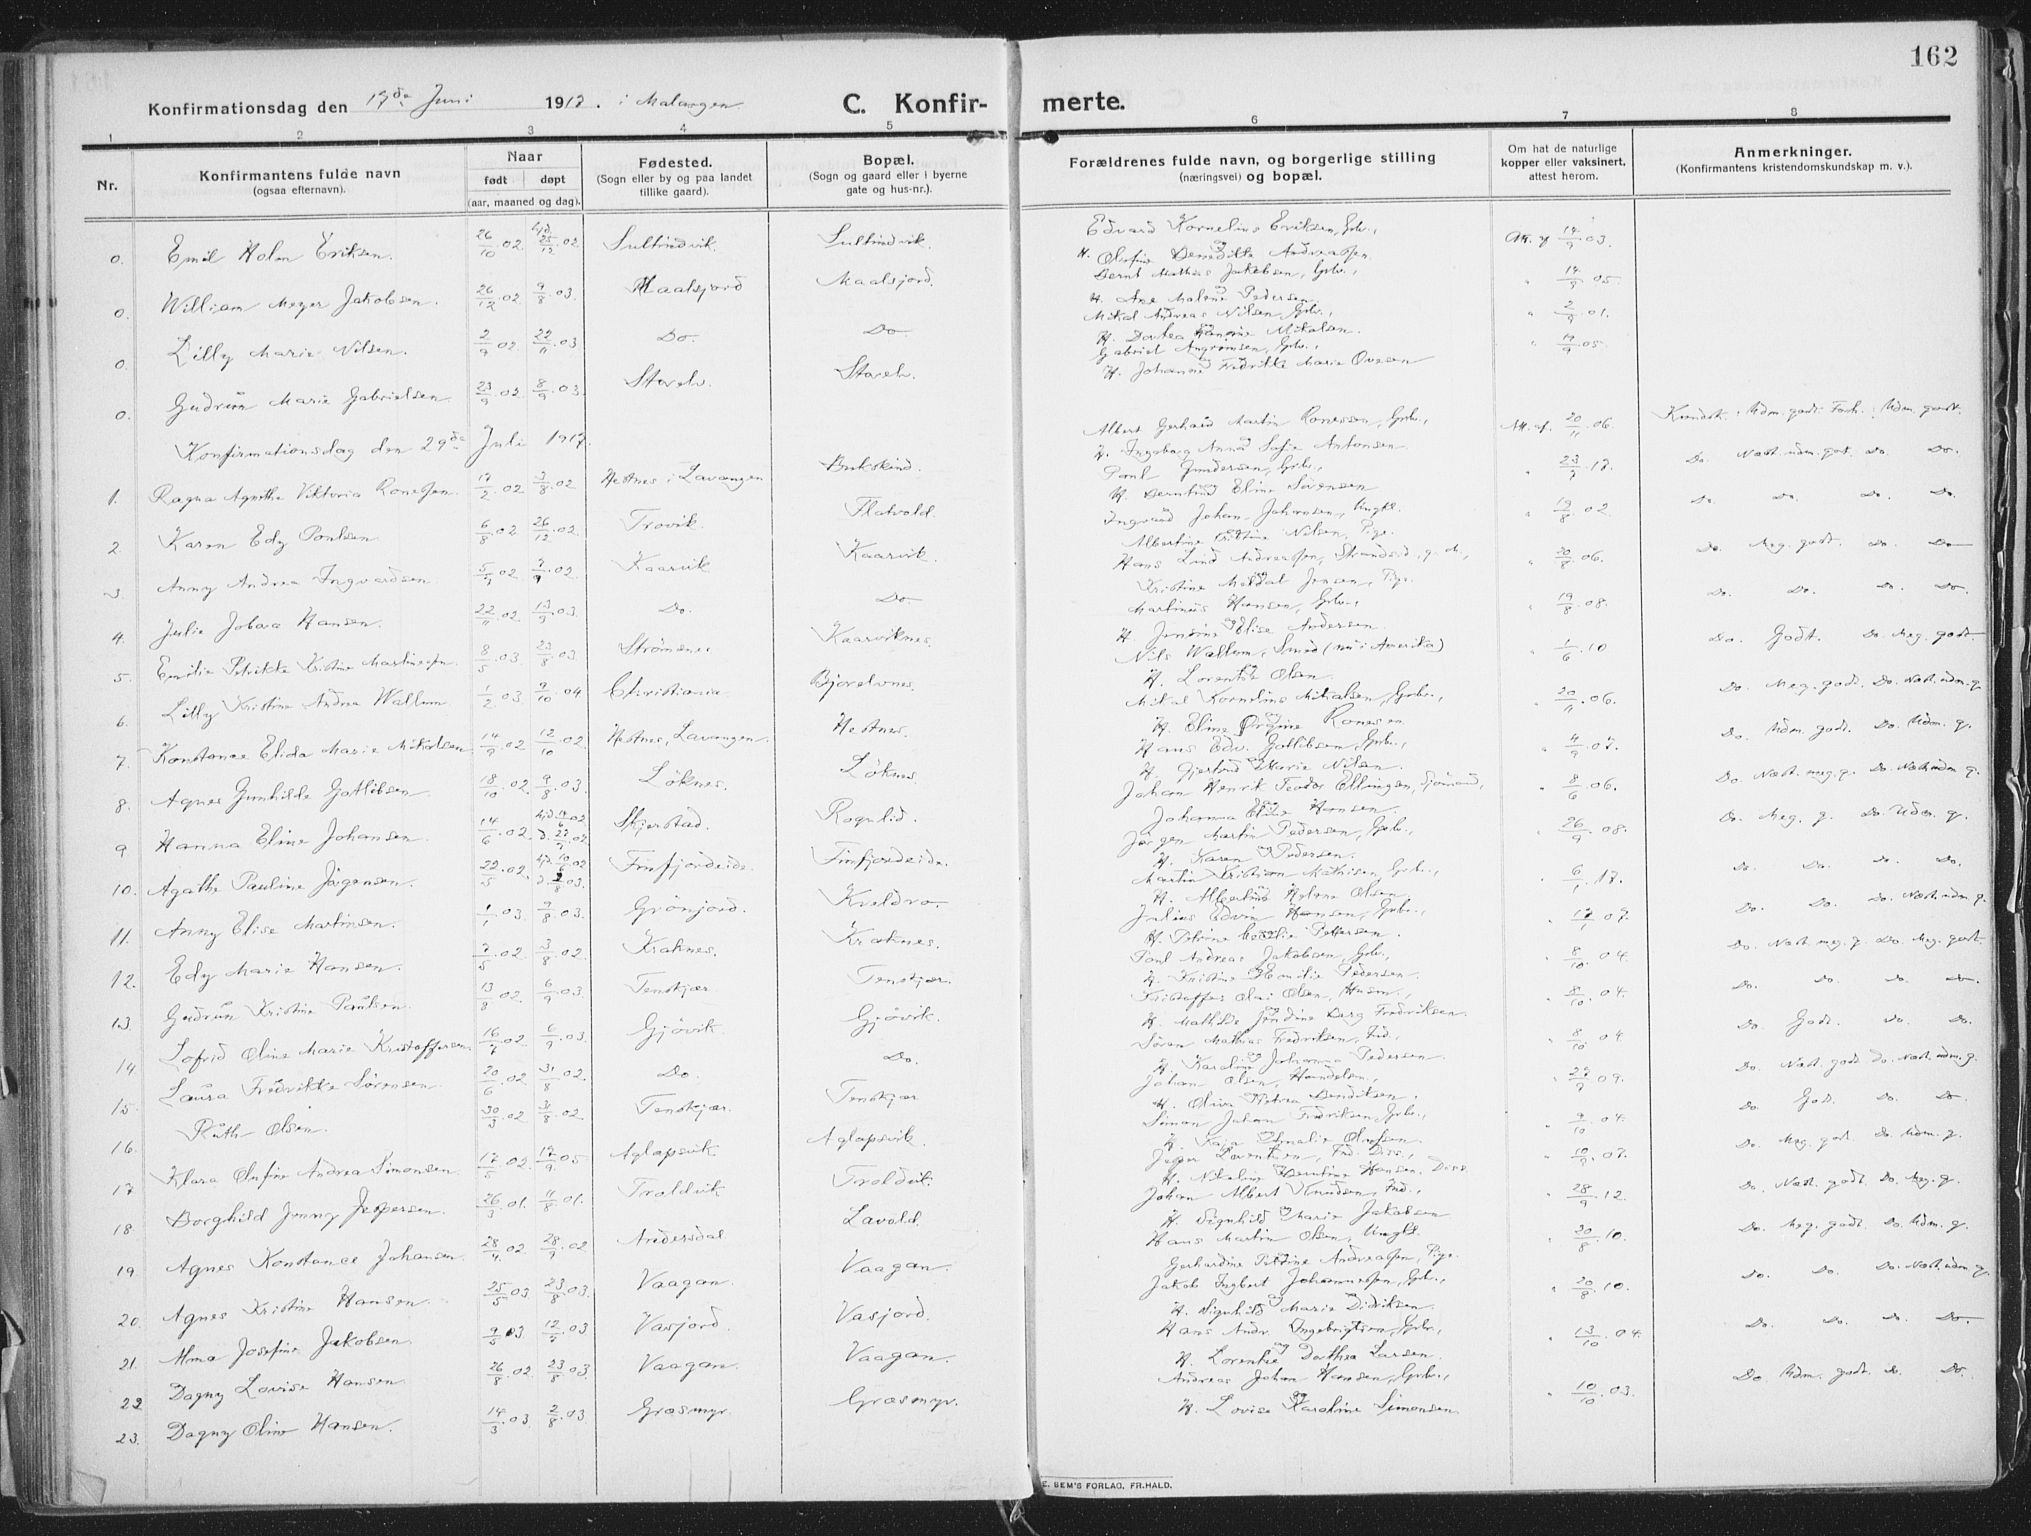 162
Konfirmationsdag den 17de Juni 1917. i Malangen.
C. Konfir- merte.
1 2 3 4 5 6 7 8
Nr.
Konfirmantens fulde navn
(ogsaa efternavn).
Naar
født døpt
(aar, maaned og dag).
Fødested.
(Sogn eller by og paa landet
tillike gaard).
Bopæl.
(Sogn og gaard eller i byerne
gate og hus-nr.).
Forældrenes fulde navn, og borgerlige stilling
(næringsvei) og bopæl.
Om hat de naturlige
kopper eller vaksinert,
attest herom.
Anmerkninger.
(Konfirmantens kristendomskundskap m. v.).
0. Emil Holm Eriksen. 26/10.02 Hjd. 25/12.02. Sultindvik. Sultindvik. Edvard Kornelius Eriksen, Grb., Att. af 14/9.03.
H. Olufine Benedikte Andreassen.
0. William Meyer Jakobsen. 26/12.02. 9/8.03. Maalsjord Maalsjord. Bernt Mathias Jakobsen, Grb., " 14/9.05.
H. Ane Malene Pedersen.
0. Lilly Marie Nilsen. 2/9.02. 22/11.03 Do. Do. Mikal Andreas Nilsen, Grb., " 2/9.01.
H. Dortea Hansine Mikalsen.
0. Gudrun Marie Gabrielsen. 23/9.02. 8/9.03. Storelv. Storelv. Gabriel Angromsen, Grb., " 14/9.05.
H. Johanne Fredrikke Marie Ovesen
Konfirmationsdag den 29de Juli 1917.
1. Ragna Agnethe Viktoria Ronessen. 17/2.02 3/8.02 Hestnes i Lavangen Bukskind. Albert Gerhard Martin Ronessen, Grb., Att. af. 20/11.06. Kundsk.: Udm. godt. Forh.: Udm. godt.
H. Ingeborg Anna Sofie Antonsen
2. Karen Edy Poulsen 6/8.02 26/12.02. Trovik. Flatvold. Poul Gundersen, Grb., " 23/7.17. Do. Næst. udm. godt. Do. Do.
H. Berntine Eline Sørensen
3. Anny Andrea Ingvardsen 5/7.02. 7/9.02. Kaarvik Kaarvik. Ingvard Johan Johansen, Ungkl. " 19/8.02 Do. Do. Do. Do.
Albertine Kristine Nilsen, Pige.
4. Julie Jobara Hansen. 22/11.02 13/9.03. Do. Do. Hans Lind Andreassen, Strandsid. g. m., " 30/8.06. Do. Meg. godt. Do. Do.
Kristine Meldal Jensen, Pige.
5. Emilie Petrikke Kristine Martinessen 8/5.03. 23/8.03. Strömsnes Kaarviknes. Martinus Hansen, Grb., " 19/8.08. Do. Do. Do. Do.
H. Jensine Elise Andersen.
6. Lilly Kristine Andrea Wallum 1/2.03 9/10.04 Christiania. Bjorelvnes. Nils Wallum, Smed (nu i Amerika) " 1/6.10 Do. Godt. Do. Meg. godt
H. Lorentse Olsen.
7. Konstance Elida Marie Mikalsen 14/9.02. 12/10.02. Hestnes, Lavangen. Hestnes. Mikal Kornelius Mikalsen, Grb., " 20/11.06. Do. Meg. godt. Do. Næst. udm. g.
H. Eline Orgine Ronesen
8. Agnes Gunhilde Gotlibsen 18/10.02. 9/8.03. Löknes. Löknes. Hans Edv. Gotlibsen, Grb., " 4/9.07. Do. Udm. godt. Do. Udm. g.
H. Gjertrud Marie Nilsen.
9 Hanna Eline Johansen. 14/6.02. Skjerstad. Rognlid. Johan Henrik Teodor Ellingsen, Sjömand, " 8/6.06. Do. Næst. meg. g. Do. Næst. udm. g.
Johanna Eline Hansen.
10. Agathe Pauline Jörgensen. 22/5.02. Finfjordeide. Finfjordeide. Jörgen Martin Pedersen, Grb., " 26/9.08. Do. Meg. g. Do. Udm. g.
H. Karen Pedersen.
11. Anny Elise Martinsen. 1/1.03. 9/8.03. Grönjord. Kveldro. Martin Kristian Mathisen, Grb., " 6/1.17. Do. Do. Do. Do.
H. Albertine Helene Olsen
12. Edy Marie Hansen. 7/5.02. 3/8.02. Kraknes. Kraknes. Julius Edvin Hansen, Grb., " 17/1.07. Do. Do. Do. Næst. udm. g.
H. Petrine Cecilie Pettersen.
13. Gudrun Kristine Paulsen. 13/8.02. 6/9.03. Tenskjær. Tenskjær. Paul Andreas Jakobsen, Grb., " 8/10.04. Do. Næst. meg. g. Do. Meg. godt.
H. Kristine Emilie Pedersen
14. Lofrid Oline Marie Kristoffersen. 16/7.02. 6/9.03. Gjövik. Gjövik. Kristoffer Olai Olsen, Husm., " 8/10.04. Do. Do. Do. Do.
H. Mathilde Jendine Berg Fredriksen.
15. Laura Fredrikke Sörensen. 20/6.02 31/8.02. Do. Do. Sören Mathias Fredriksen, Ind. " 8/10.04. Do. Godt. Do. Do.
H. Karoline Johanna Pedersen
16. Ruth Olsen. 30/3.02 31/8.02. Tenskjær. Tenskjær Johan Olsen, Handelsm., " 27/9.09. Do. Næst. godt Do. Næst. udm. g.
H. Oliva Petrea Bendiksen.
17 Klara Olufine Andrea Simonsen. 17/5.02 17/9.05 Aglapsvik. Aglapsvik. Simon Johan Fredriksen, Grb., " 9/10.04. Do. Godt. Do. Do.
H. Kaja Amalie Olufsen.
18. Borghild Jenny Jespersen. 26/3.01. 11/8.01. Troldvik Troldvik. Jesper Lorentsen, Ind. Diss., " 10/9.07. Do. Meg. godt. Do. Udm. g.
H. Nikoline Berntine Hansen. Diss.
19. Agnes Konstance Johansen. 28/4.02. 28/9.02 Andersdal Lavold. Johan Albert Knudsen, Ind., " 28/9.12. Do. Næst. godt Do. Meg. g.
H. Signhild Marie Jakobsen
20. Agnes Kristine Hansen. 25/5.03 23/8.03. Vaagan. Vaagan. Hans Martin Olsen, Ungkl. " 20/8.10. Do. Meg. godt. Do. Udm. g.
Gerhardine Petrine Andreassen, Pige.
21. Alma Josefine Jakobsen. 9/5.03. 12/7.03 Vasjord. Vasjord. Jakob Ingbert Johannessen, Grb., " 20/8.10. Do. Do. Do. Næst. udm. g.
H. Signhild Marie Didriksen.
22 Dagny Lovise Hansen 26/8.02. 23/8.03. Vaagan. Vaagan. Hans Andr. Ingebrigtsen, Grb., " 13/10.04. Do. Do. Do. Do.
H. Lorentse Dorthea Larsen.
23. Dagny Oline Hansen. 14/3.03 2/8.03. Græsmyr. Græsmyr. Andreas Johan Hansen, Grb., " 10/10.03. Do. Udm. godt. Do. Do.
H. Lovise Karoline Simonsen.
E. SEM'S FORLAG, FR.HALD.